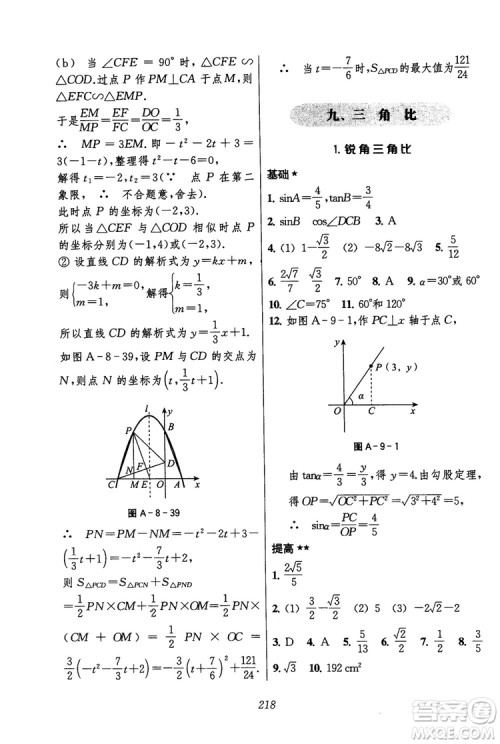 (b) 当∠CFE=90°时,△EFC∽
△COD.过点P作PM⊥CA于点M,则
△EFC∽△EMP.
于是EM/MP=EF/FC=DO/OC=1/3
∴ MP=3EM.即-t²-2t+3=
t²+3t,整理得
解得t₁=-2,t₂= (∵ 点P在第二
象限, ∴ 不合题意,舍去).
此时点P的坐标为(-2,3).
所以当△CEF与△COD相似时点P的
坐标为(-1,4)或(-2,3)
② 设直线CD的解析式为y=kx+m,
则{-3k+m=0, m=1,解得{k=1/3, m=1.
所以直线CD的解析式为y=1/3x+1.
如图A-8-39,设PM与CD的交点为
N,则点N的坐标为(t,1/3t+1).
l y P B D C M F E O A x
图A-8-39
∴ PN=PM-NM=-t²-2t+3-
(1/3t+1)=-t²-7/3t+2
则S△PCD=S△PCN+S△PND
=1/2PN×CM+1/2PN×OM=1/2PN×
(CM+OM)=1/2PN×OC=
3/2(-t²-7/3t+2)=-3/2(t+7/6)²+121/24
∴ 当t=-7/6时,S△PCD的最大值为121/24
九、三角比
1.锐角三角比
基础★
1. sinA=4/5,tanB=3/4
2. sinB cos∠DCB 3. A
4. (1) -√3/2 (2) -8√2-8√3 5. 5/12
6. 2√7/7 3/2 7. 50° 8. A 9. 30°或60°
10. ∠C=75° 11. α=60°或120°
12. 如图A-9-1,作PC⊥x轴于点C,
y P(3,y) α O C x
图A-9-1
由tanα=4/3,得y=4.由勾股定理,
得OP=√OC²+PC²=√3²+4²=5
∴ sinα=PC/OP=4/5
提高★★
1. 2√5/5
2. (1) 3/2-√3/2 (2) 5 (3) -√2/2
3. D 4. √3/3 5. A 6. 1/3 7. A 8. 2
9. √3 10. 192 cm²
218